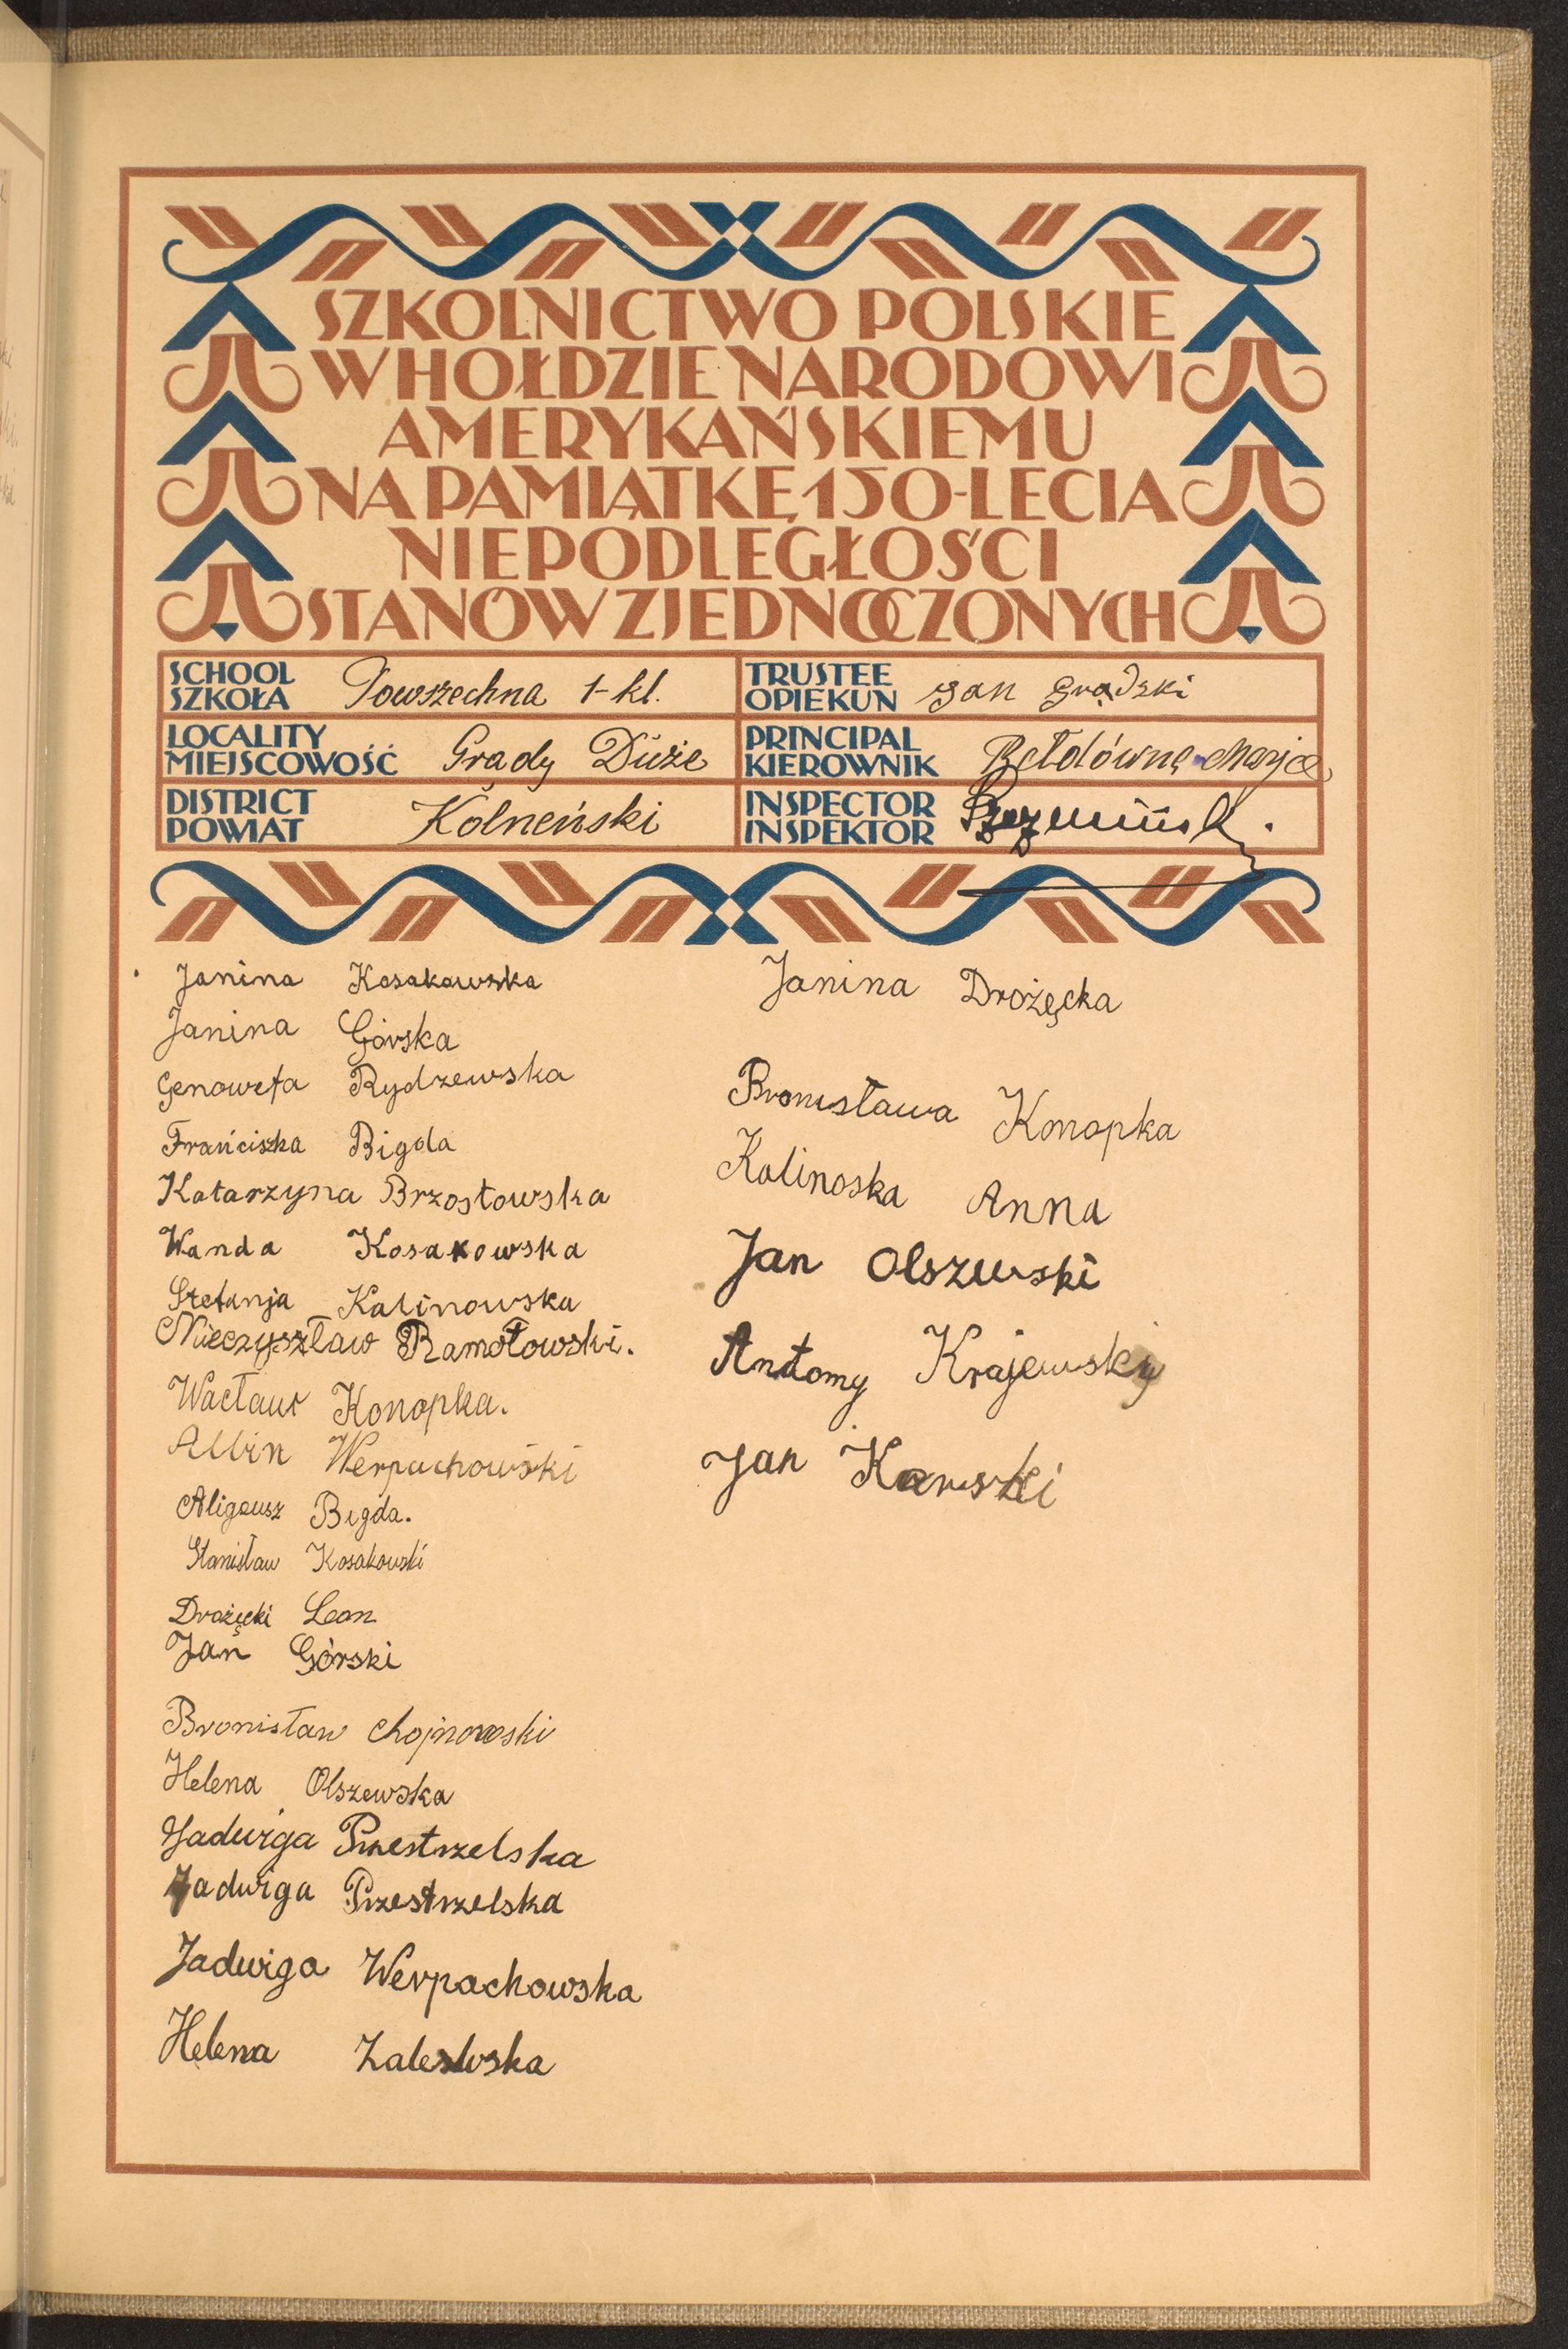 SZKOLNICTWO POLSKIE
W HOŁDZIE NARODOWI
AMERYKAŃSKIEMU
NA PAMIĄTKĘ 150-LECIA
NIEPODLEGŁOŚCI
STANÓW ZJEDNOCZONYCH
SCHOOL
SZKOŁA
Powszechna 1-kl.
TRUSTEE
OPIEKUN
Jan Grądzki
LOCALITY
MIEJSCOWOŚĆ
Grądy Duże
PRINCIPAL
KIEROWNIK
Bełdówna Marja
DISTRICT
POWIAT
Kolneński
INSPECTOR
INSPEKTOR
Janina Kosakowska
Janina Górska
Genowefa Rydzewska
Frańciszka Bigda
Katarzyna Brzostowska
Wanda Kosakowska
Stefanja Kalinowska
Mieczyszław Ramotowski.
Wacław Konopka.
Albin Werpachowski
Aligeusz Bigda.
Stanisław Kosakowski
Drożęcki Leon
Jan Górski
Bronisław Chojnowski
Helena Olszewska
Jadwiga Przestrzelska
Jadwiga Przestrzelska
Jadwiga Werpachowska
Helena Zalewska
Janina Drożęcka
Bronisława Konopka
Kalinoska Anna
Jan Olszewski
Antomy Krajewsky
Jan Karwski